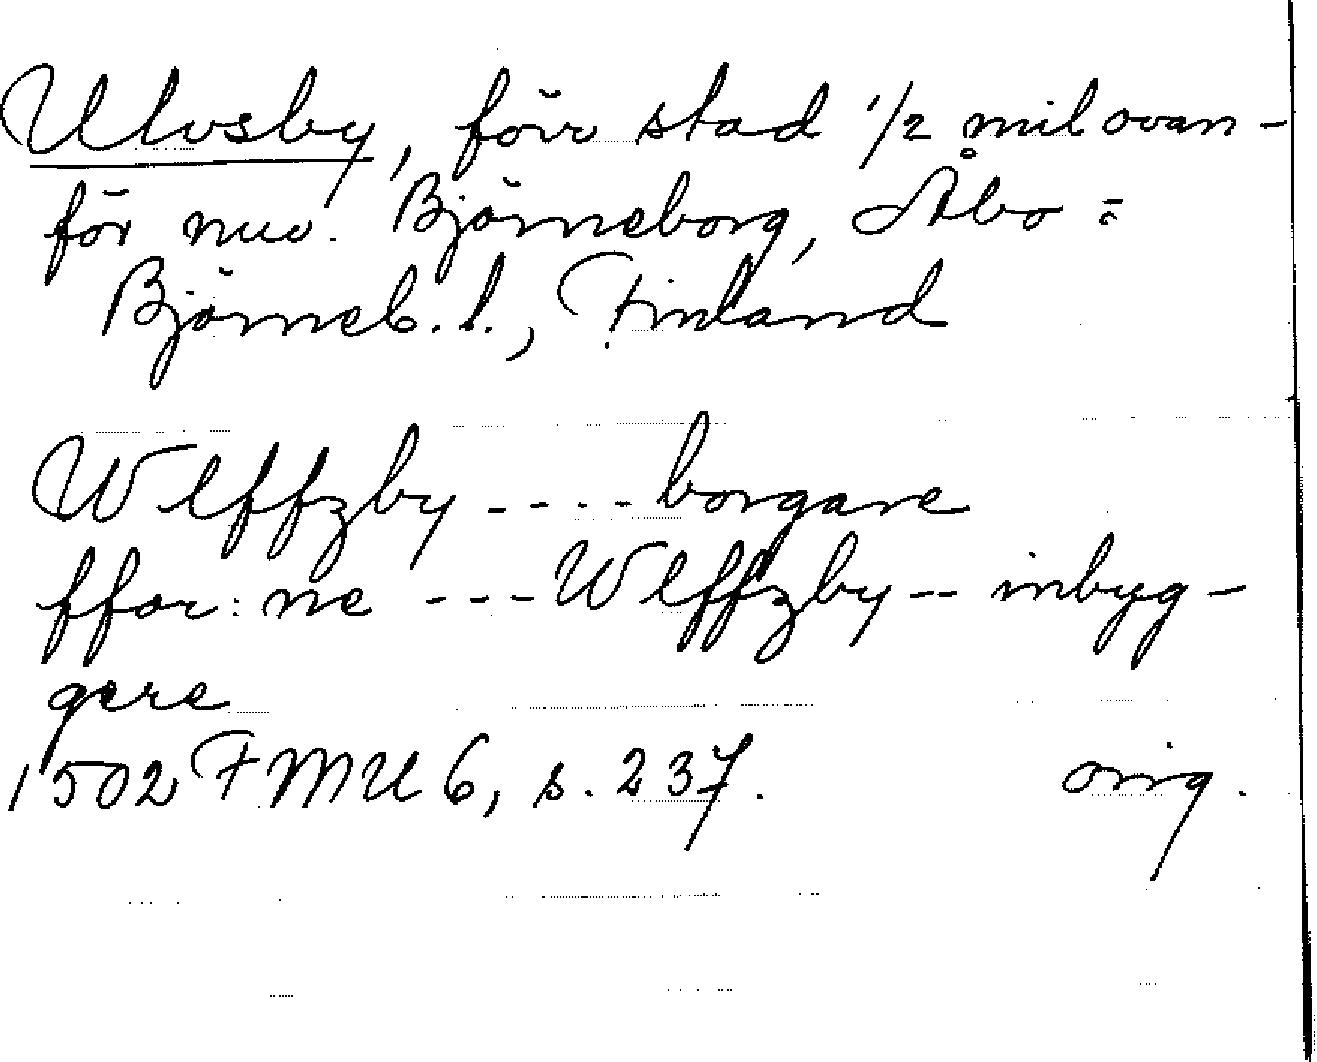 Ulvsby, förr stad 1/2 mil ovan-
för nuv. Björneborg, Åbo-
Björneb. l., Finland
Wlffzby ---- borgare
ffor: ne --- Wlffzby -- inbyg-
gere
1502 FMU 6, s. 237. orig.